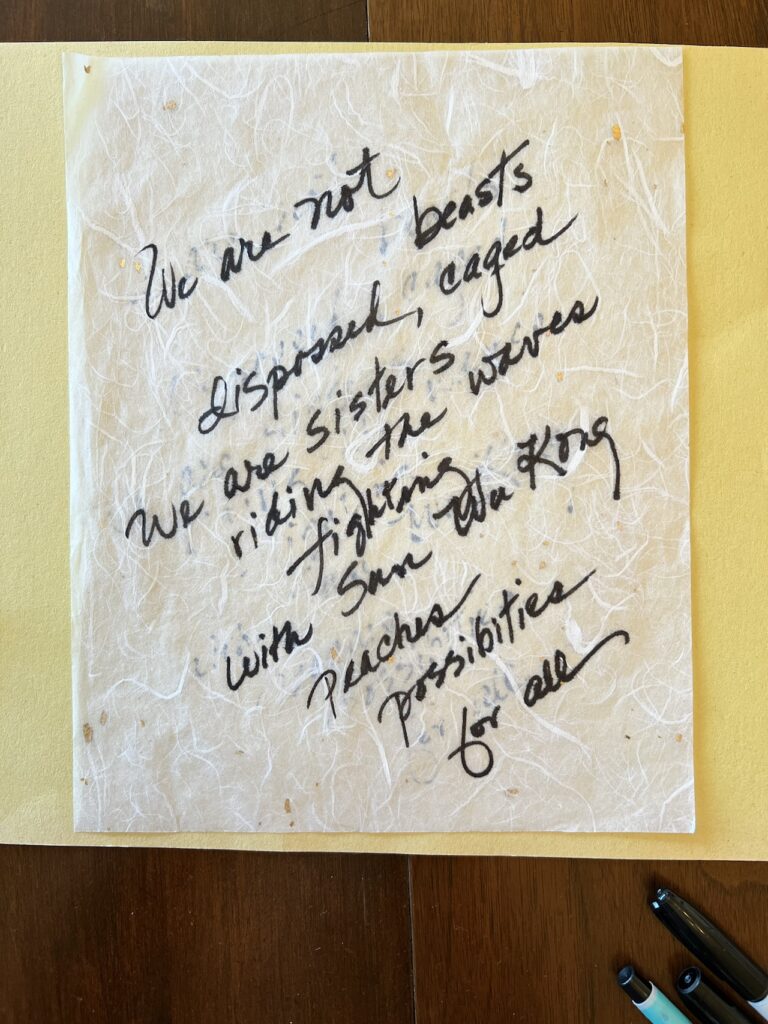 We are not
beasts
dispossed, caged
We are sisters
riding the waves
fighting
with Sun Wu Kong
Peaches
possibities
for all